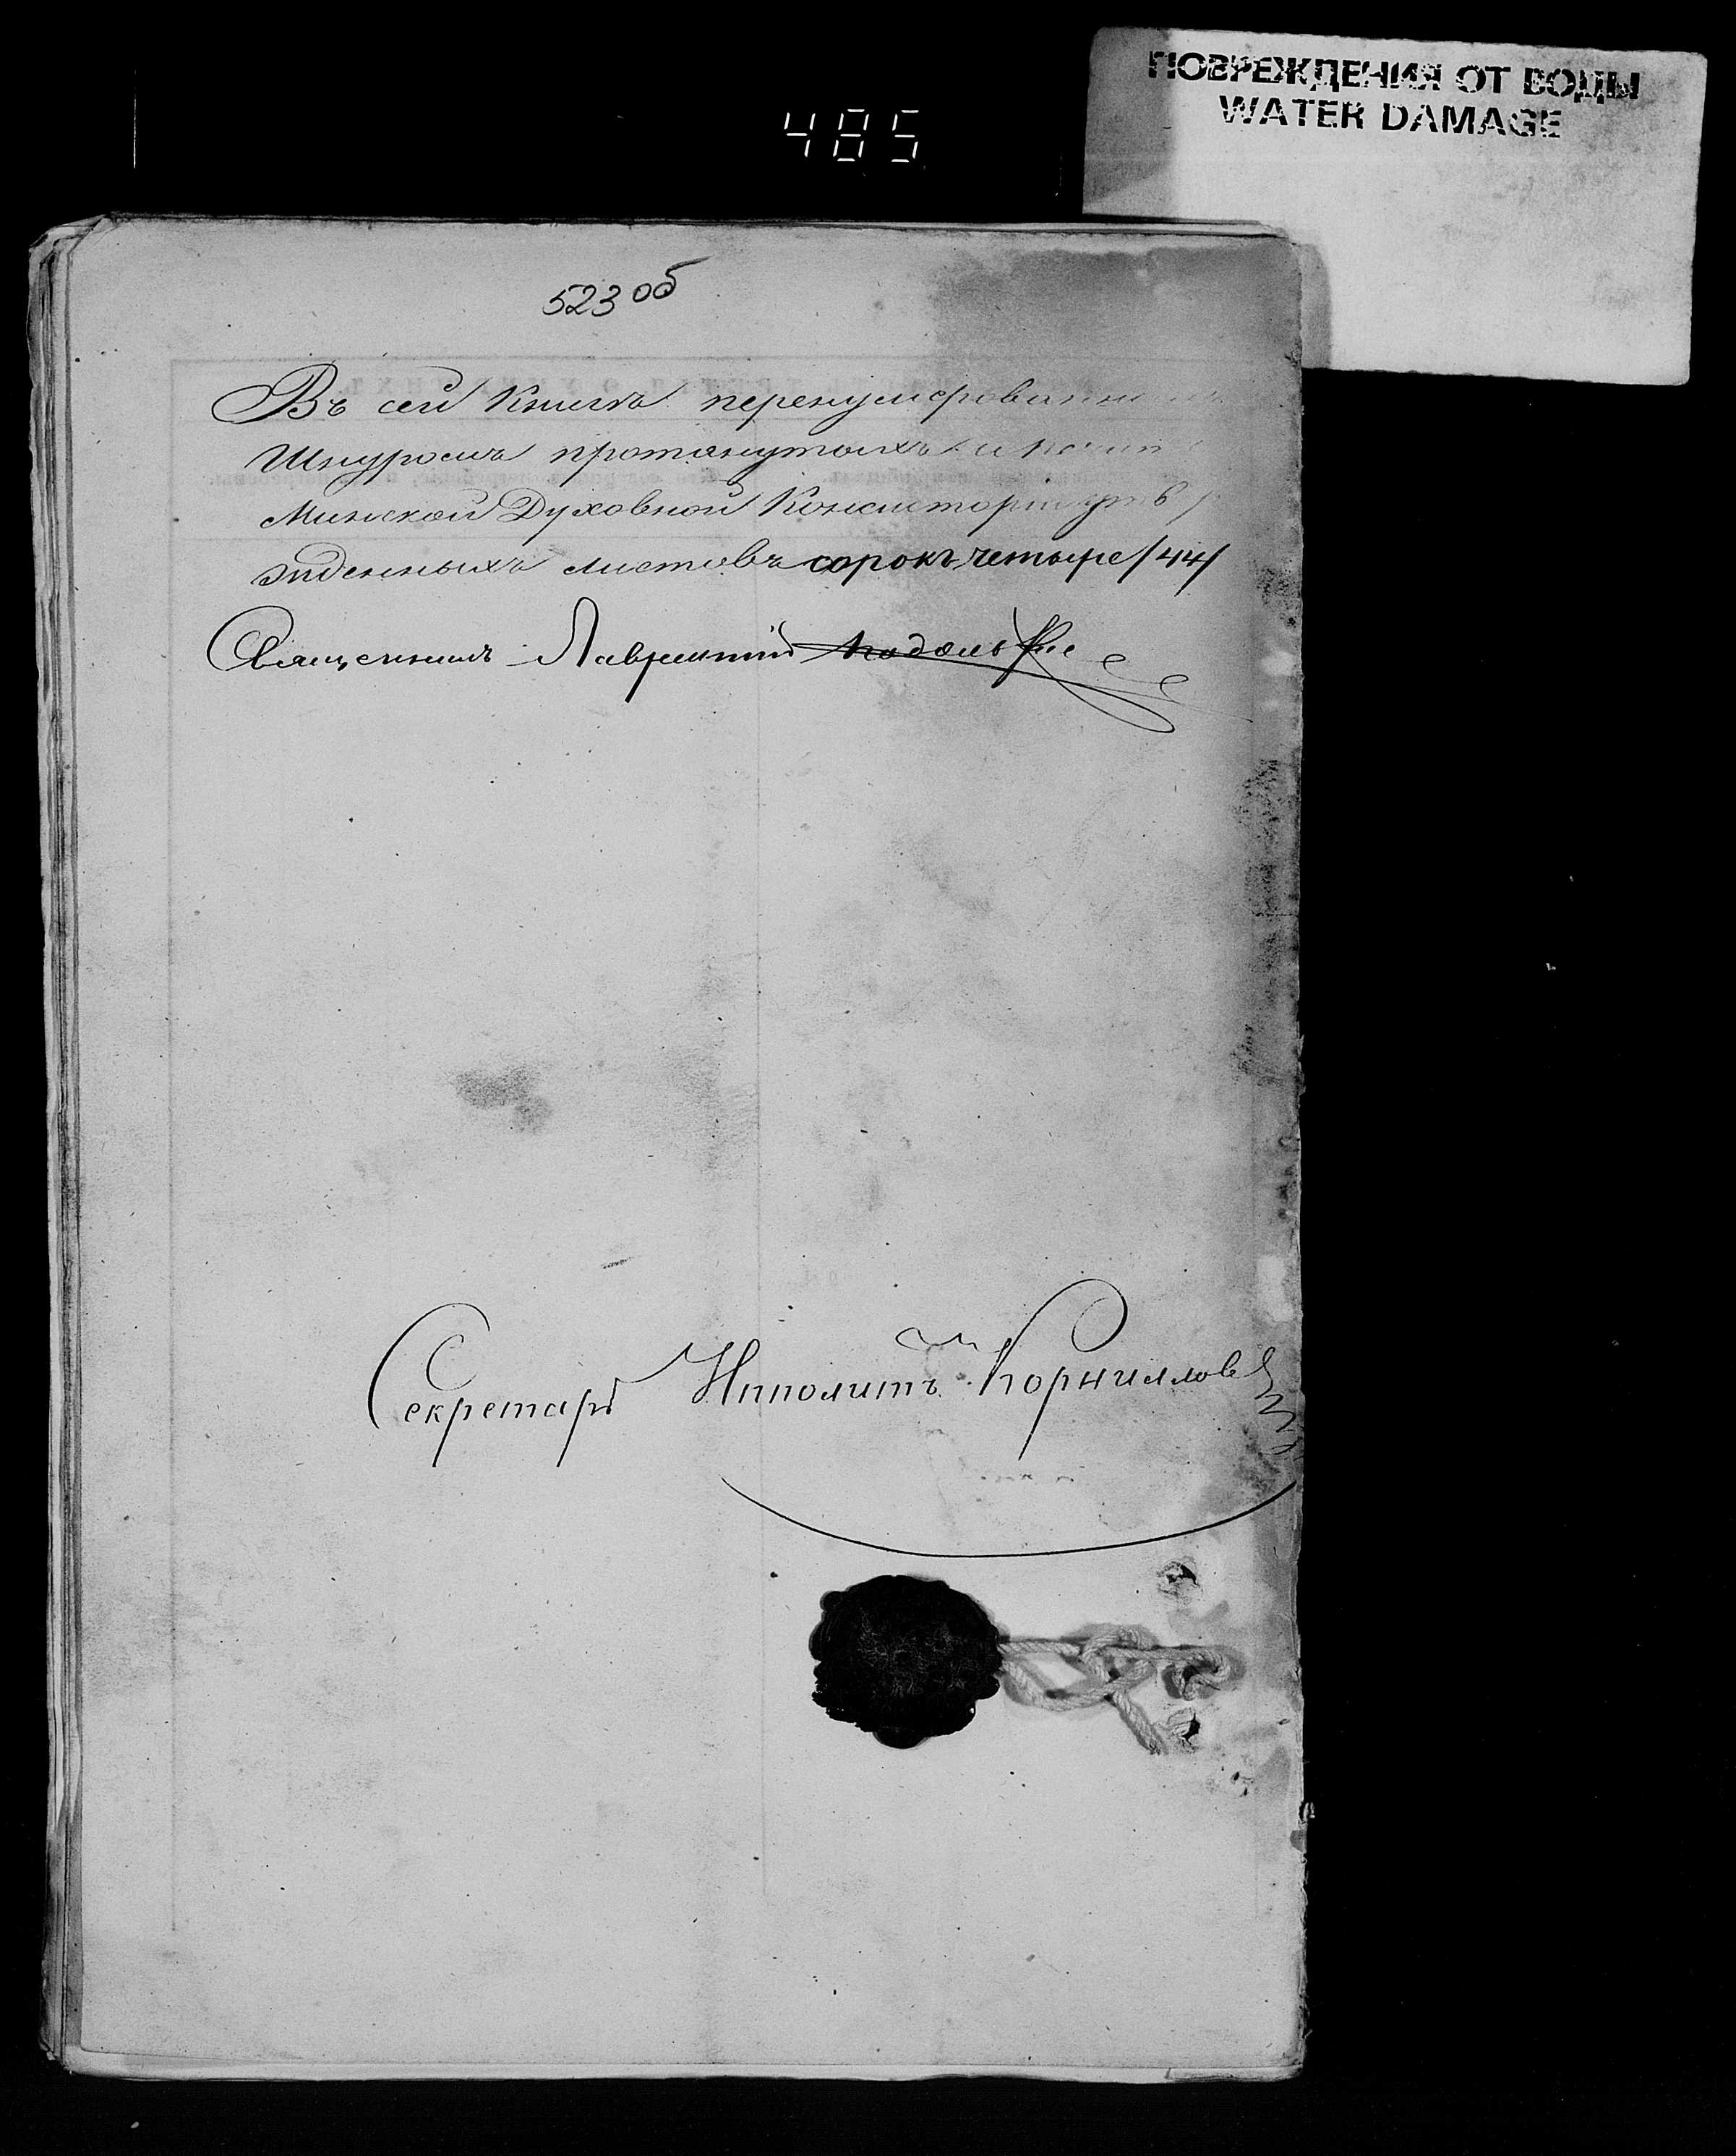 ПОВРЕЖДЕНИЯ ОТ ВОДЫ
WATER DAMAGE
485
523 об
Въ сей Книгѣ перенумерованны
Шнуромъ протянутыхъ и
Минской Духовной Консисторіи утв
жденныхъ листовъ сорокъ четыре /44/
Священникъ Лаврентій
Секретарь Ипполитъ Корнилловъ